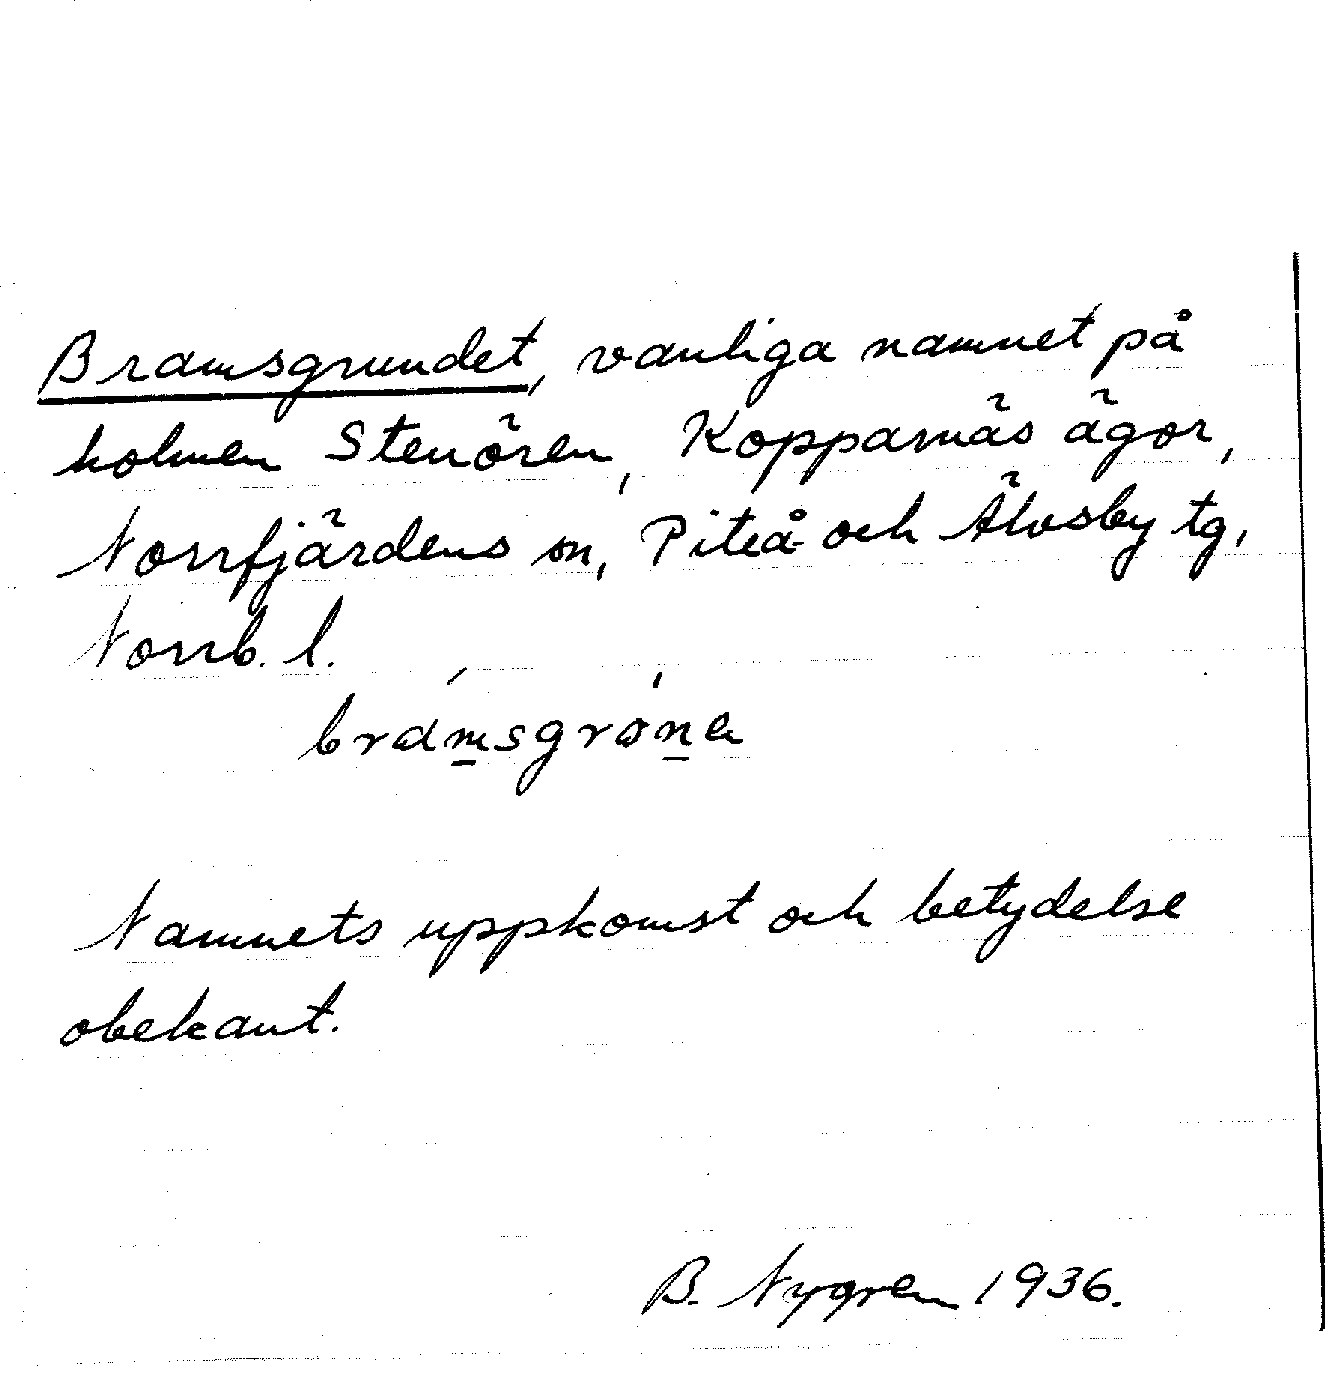 Bramsgrundet, vanliga namnet på
holmen Stenören, Kopparnäs ägor,
Norrfjärdens sn, Piteå och Älvsby tg,
Norrb. l.
bramsgrøna
Namnets uppkomst och betydelse
obekant.
B. Nygren 1936.